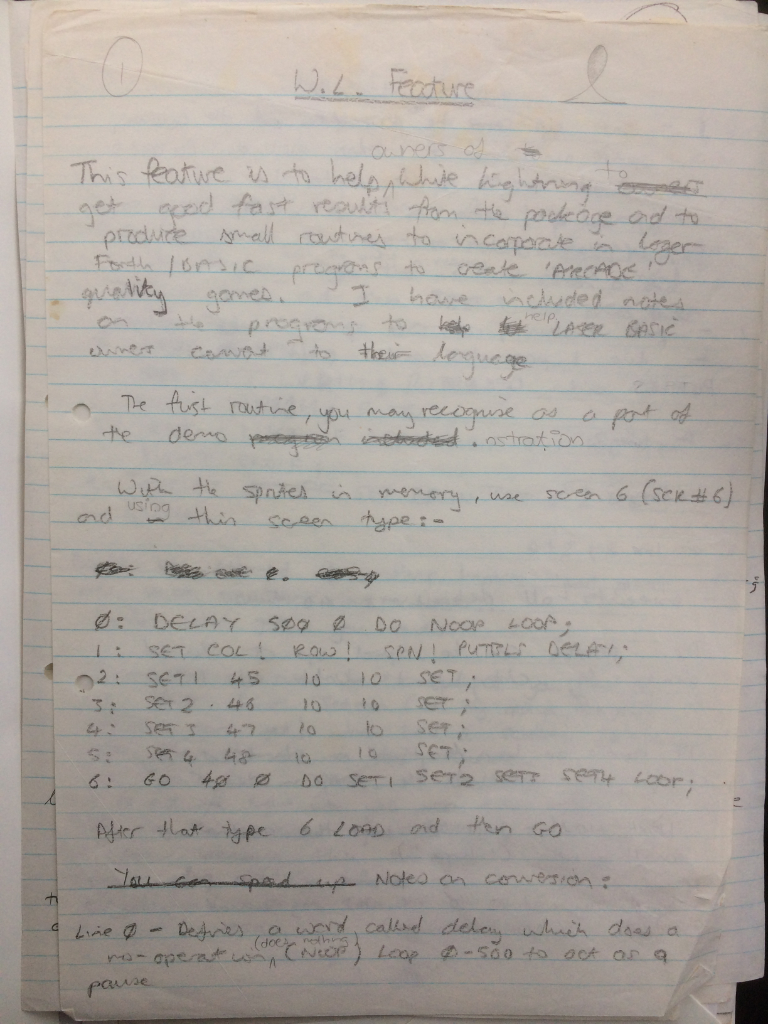 1
W.L. Feature
owners of
This feature is to help, White Lightning to
get good fast results from the package and to
produce small routines to incorporate in larger
Forth / BASIC programs to create 'ARCADE'
quality games. I have included notes
on the programs to help LASER BASIC
owners convert to their language
The first routine, you may recognise as a part of
the demo nstration
With the sprites in memory, use screen 6 (SCR #6)
and using this screen type:-
0: DELAY 500 0 DO NOOP LOOP;
1: SET COL! ROW! SPN! PUTBLS DELAY;
2: SET1 45 10 10 SET;
3: SET2 . 46 10 10 SET;
4: SET3 47 10 10 SET;
5: SET4 48 10 10 SET;
6: GO 40 0 DO SET1 SET2 SET3 SET4 LOOP;
After that type 6 LOAD and then GO
You can speed up Notes on conversion:
Line 0 - Defines a word called delay which does a
no-operation, (does nothing) (NOOP) Loop 0-500 to act as a
pause